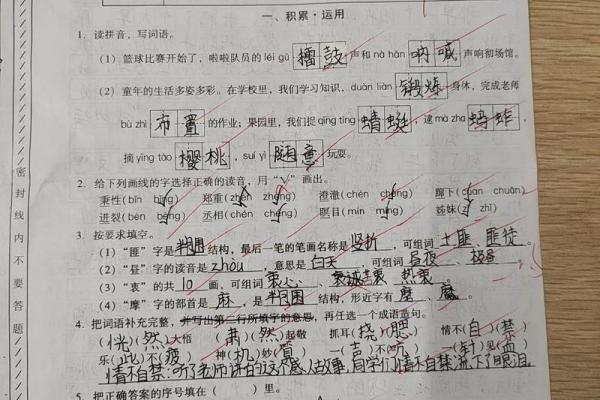 一、积累·运用
1. 读拼音，写词语。
(1) 篮球比赛开始了，啦啦队员的 léi gǔ 擂鼓 声和 nà hǎn 呐喊 声响彻场馆。
(2) 童年的生活多姿多彩。在学校里，我们学习知识，duàn liàn 锻炼 身体，完成老师
bù zhì 布置 的作业；果园里，我们捉 qīng tíng 蜻蜓，逮 mà zha 蚂蚱，
摘 yīng táo 樱桃，suí yì 随意 玩耍。
2. 给下列画线的字选择正确的读音，用“√”画出。
秉性(bǐn bǐng) 郑重(zhèn zhèng) 澄澈(chén chéng) 蹿下(cuān chuān)
迸裂(bèn bèng) 丞相(chén chéng) 瞑目(mín míng) 姊妹(zǐ zhǐ)
3. 按要求填空。
(1) “匪” 字是 半包围 结构，最后一笔的笔画名称是 竖折，可组词 土匪、匪徒。
(2) “昼” 字的读音是 zhòu，意思是 白天，可组词 昼夜、
(3) “衷” 的共 10 画，可组词 衷心、衷诚 热衷。
(4) “摩” 字的部首是 麻，是 半包围 结构，形近字有 磨、魔。
4. 把词语补充完整，并写出第二行所填字的意思，再任选一个成语造句。
(恍)(然)大悟 (肃)(然)起敬 抓耳(挠)(腮) 情不(自)(禁)
乐(此)不(疲) 神(机)妙(算) 一(声)不(吭) 一(针)见(血)
情不自禁：听了老师讲的这个感人故事，同学们情不自禁流下了眼泪。
5. 把正确答案的序号填在（ ）里。
密封线内不要答题